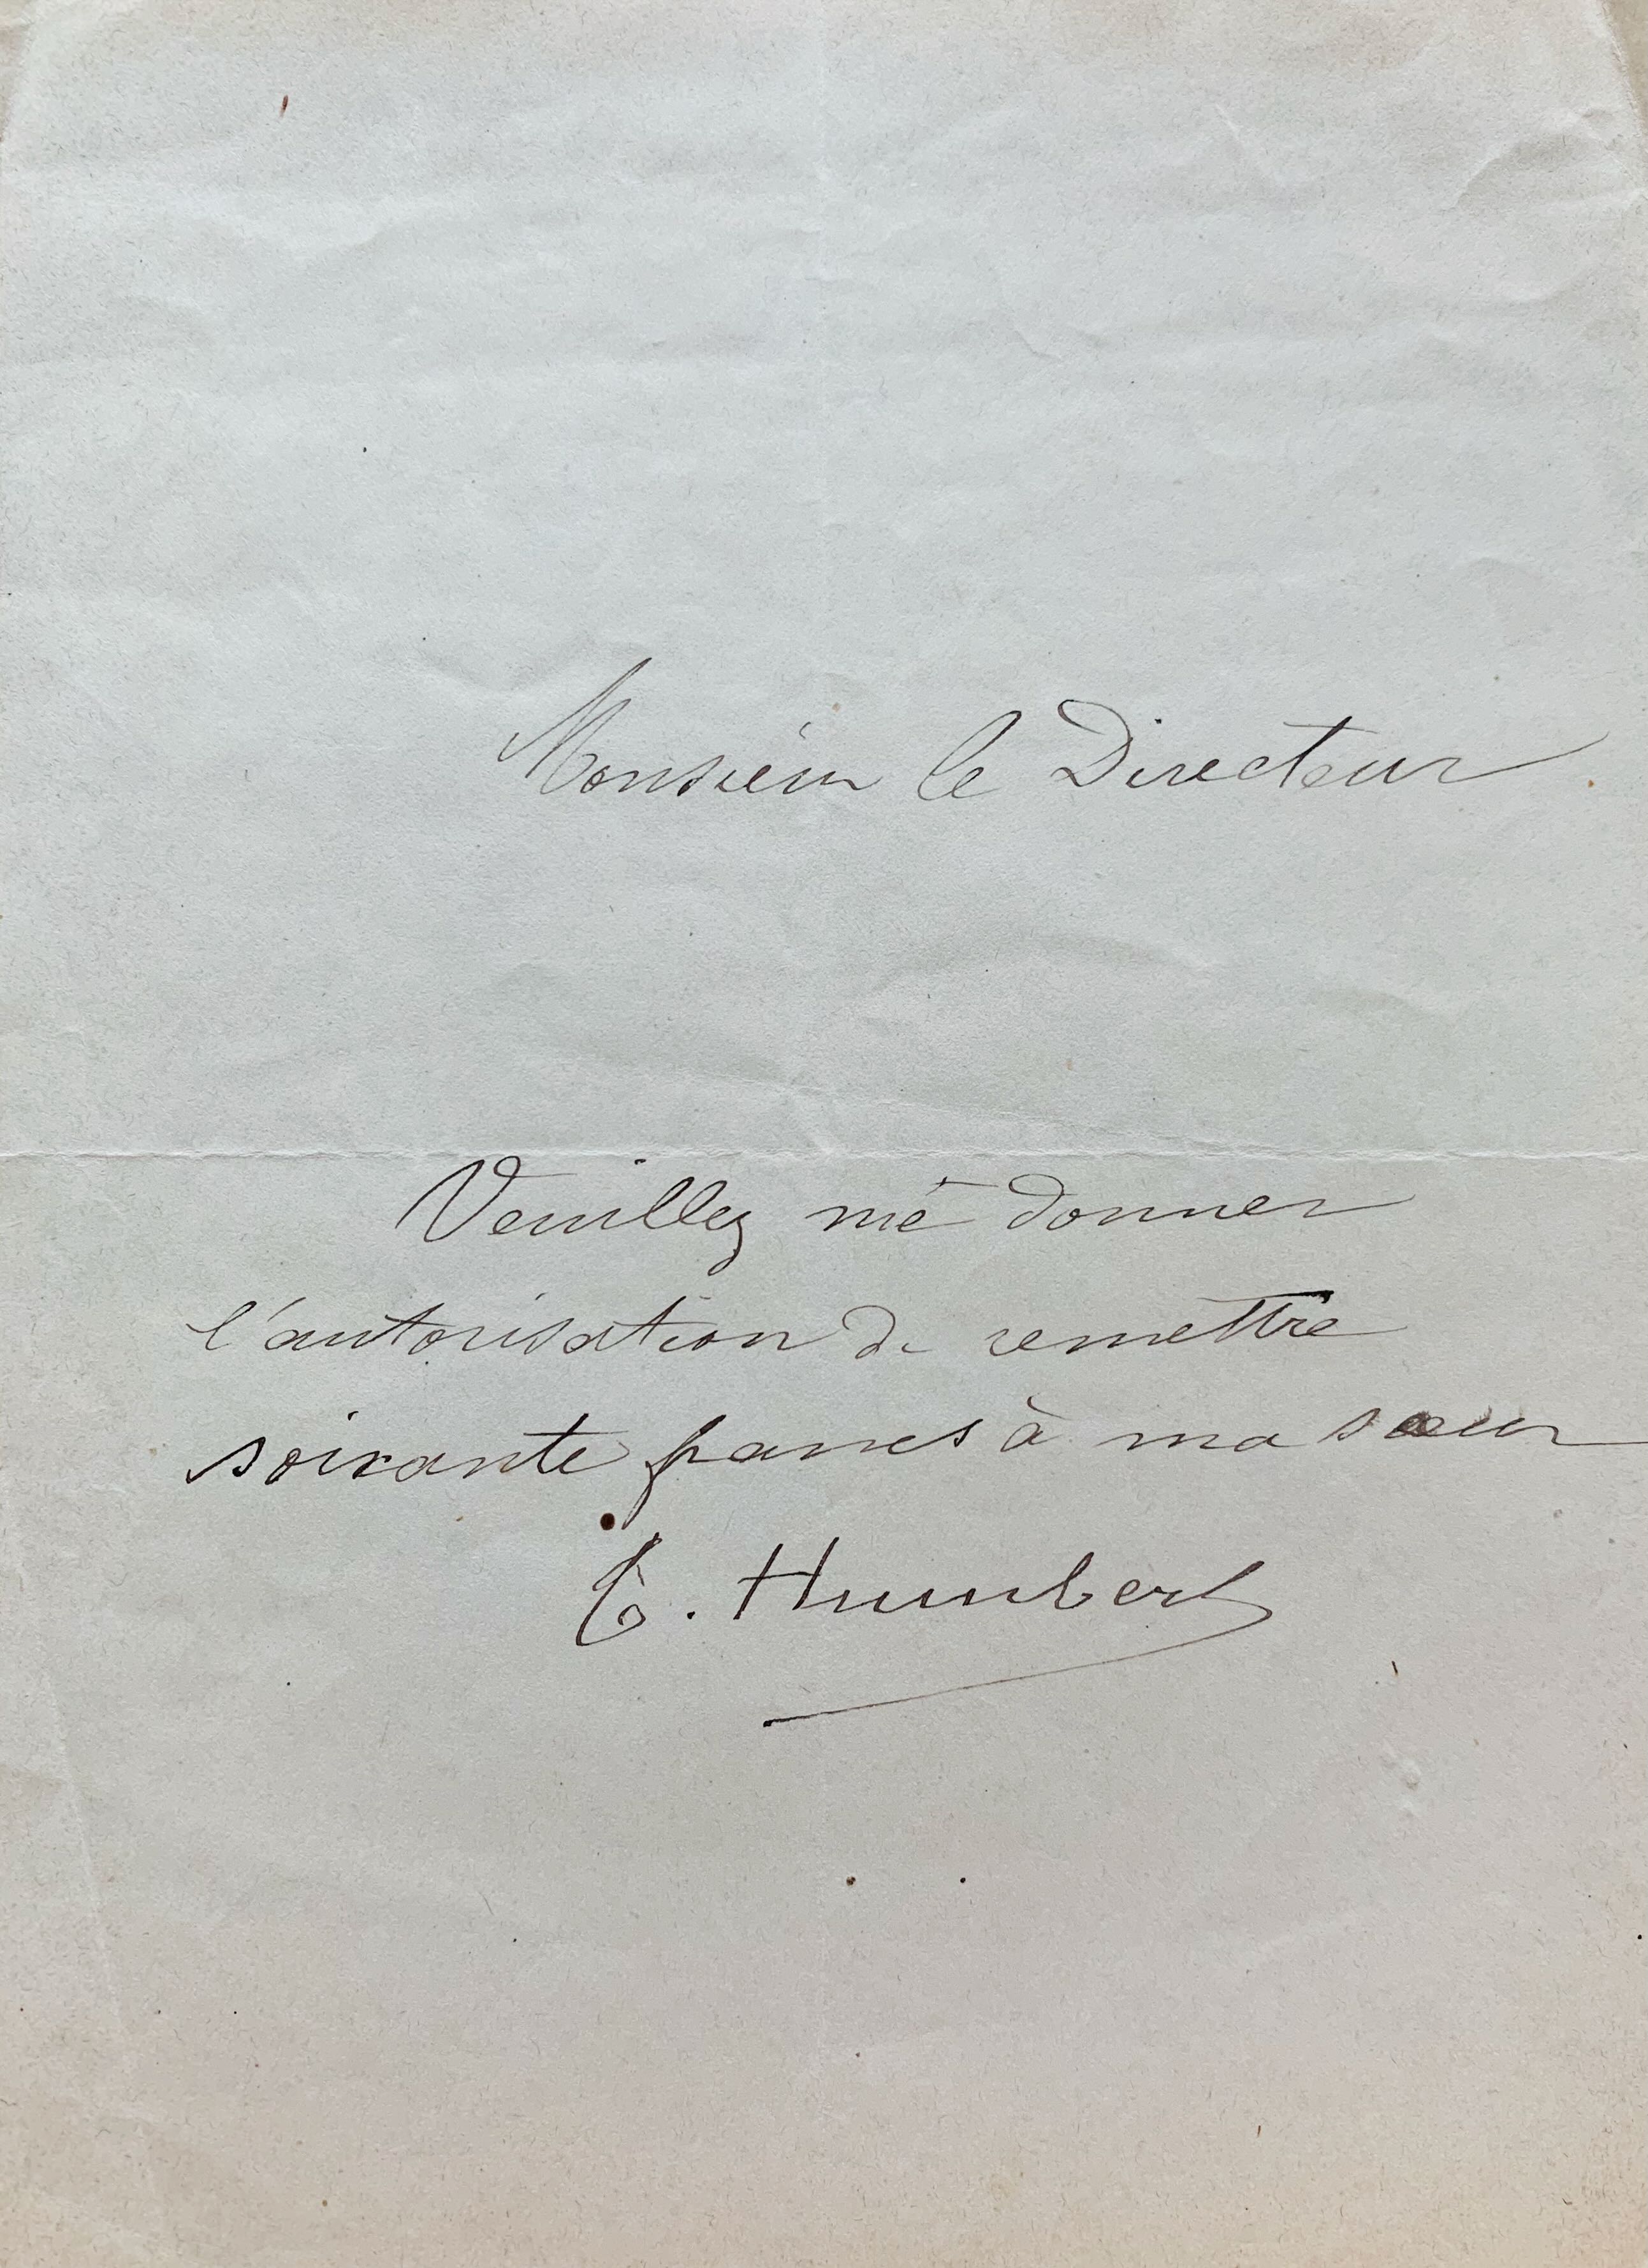 Monsieur le Directeur
Veuillez me donner
l'autorisation de remettre
soixante francs à ma sœur
T. Humbert